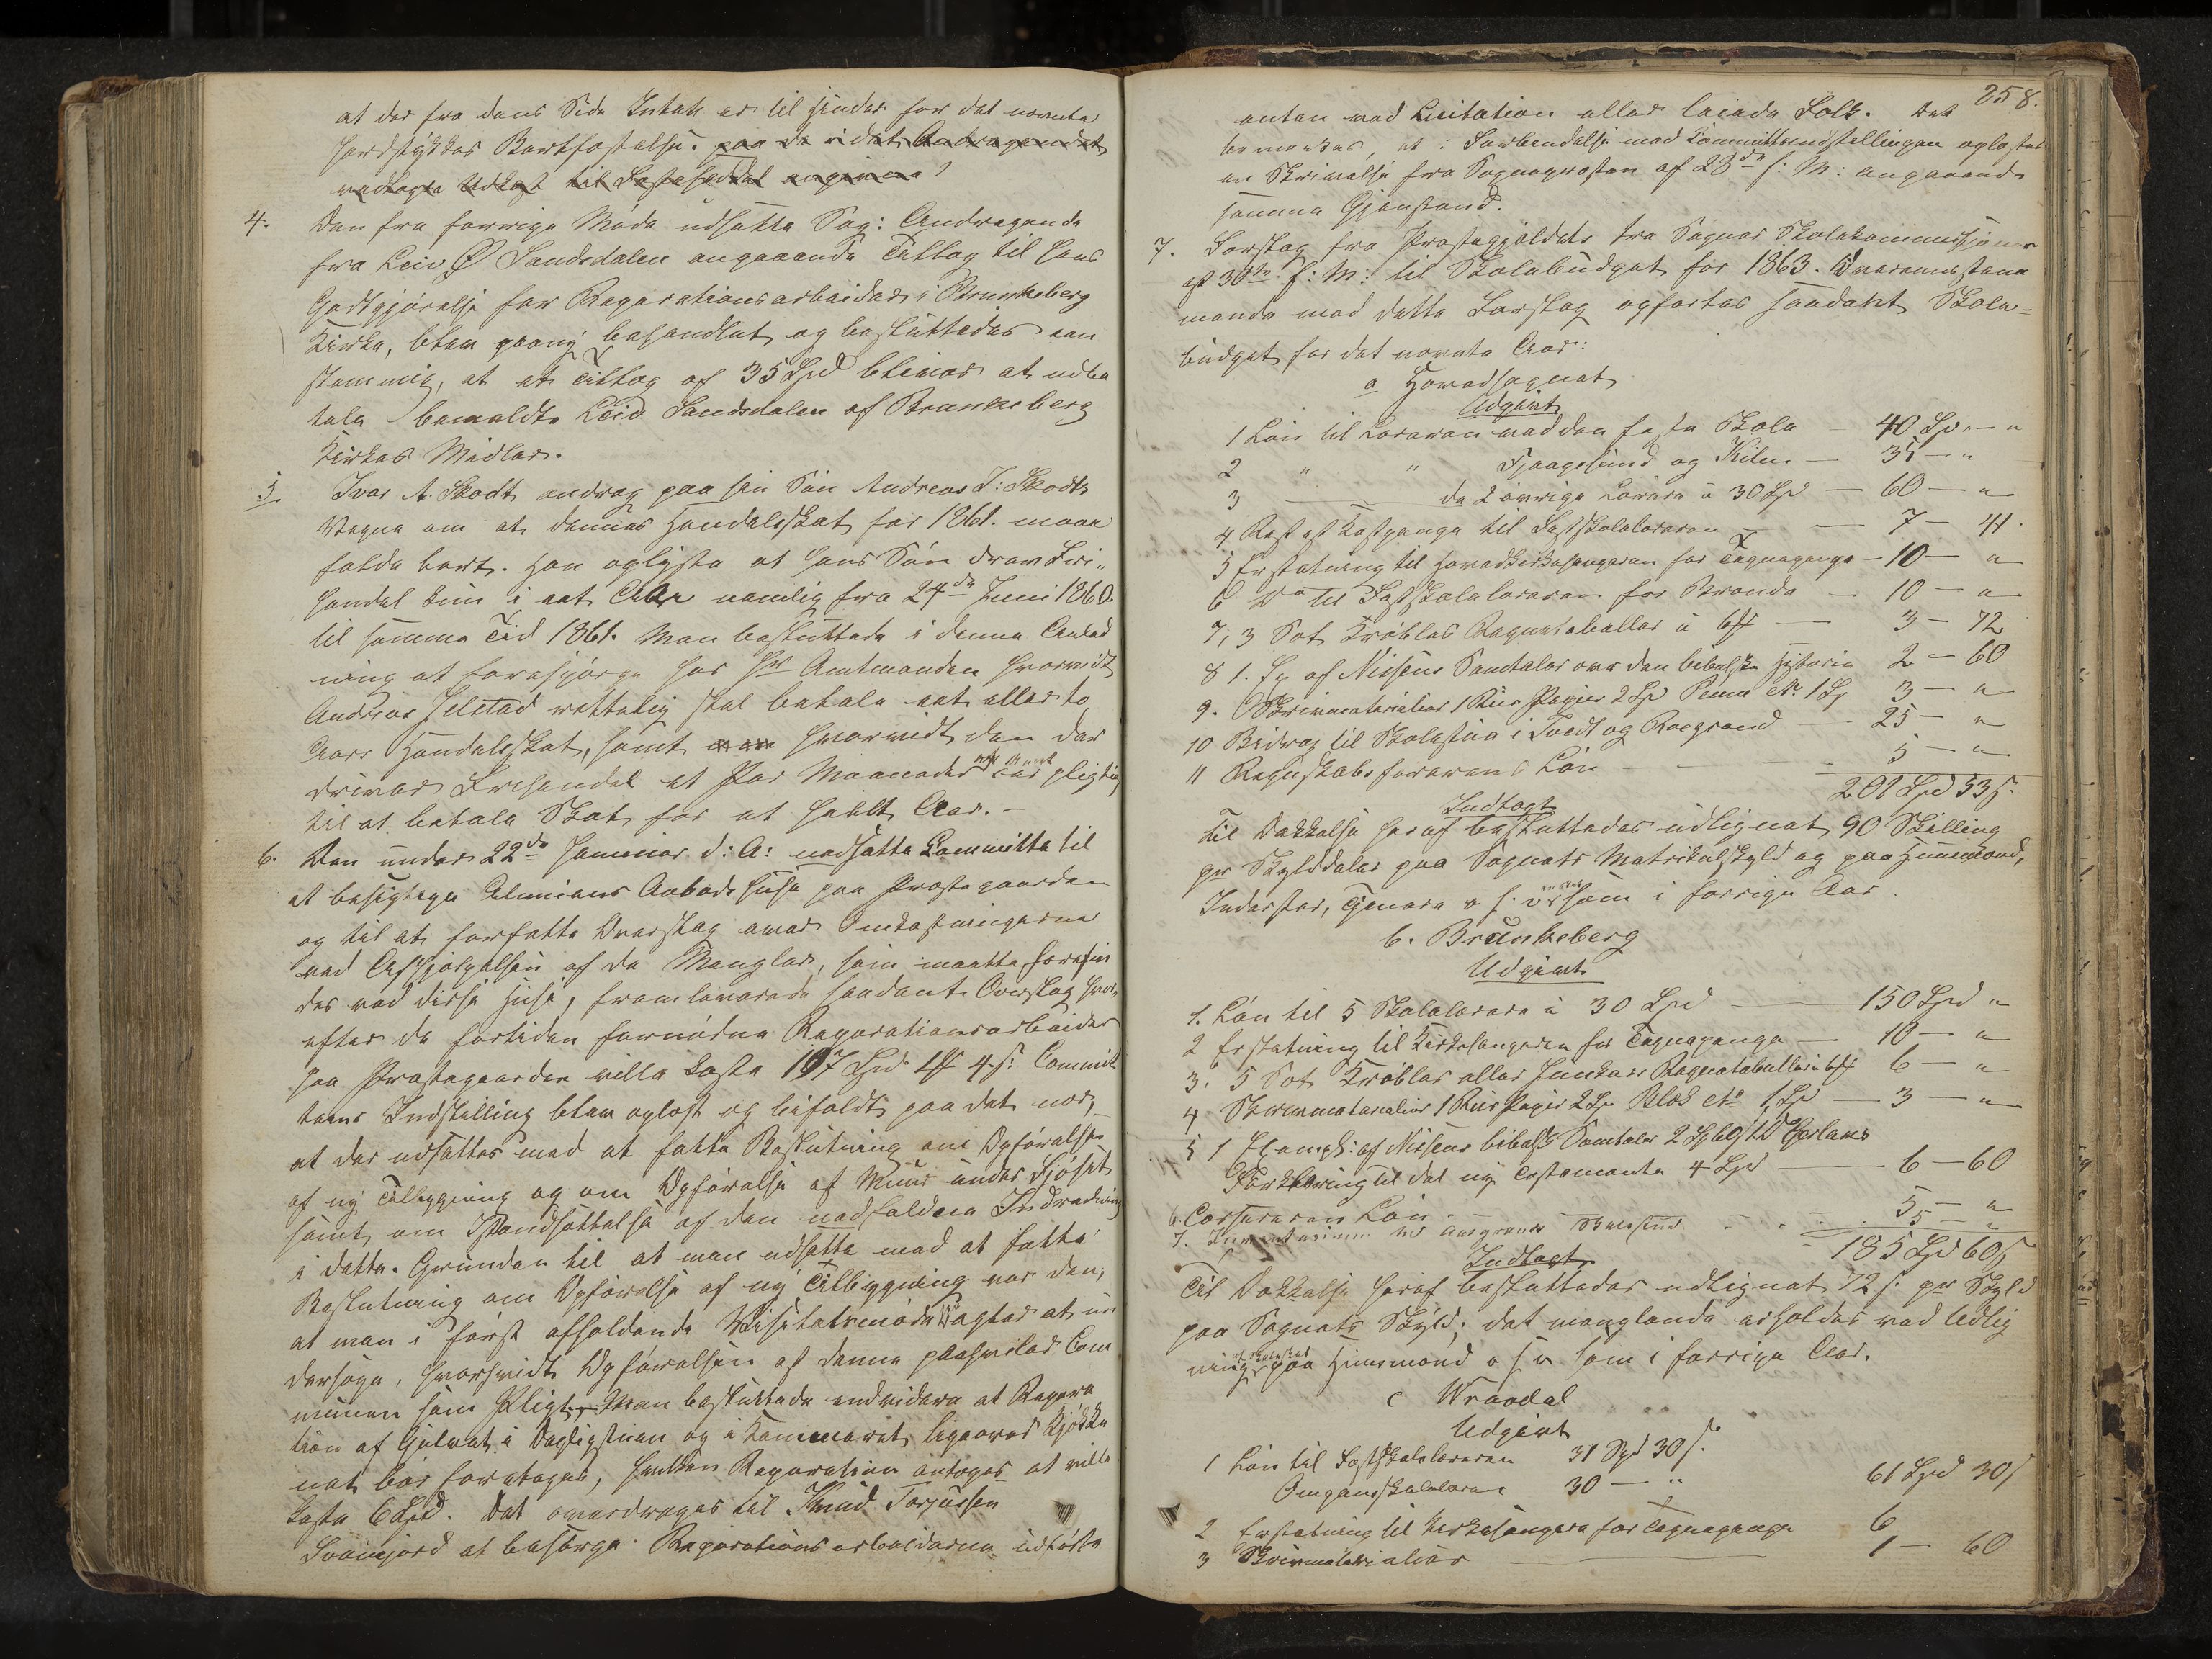 at der fra dens Side Intet er til Hinder for det nævnte
Jordstykkes Bortfæstelse. paa de i det Andragendet
vedlagte Udkast til Festeseddel angivne
4. Den fra forrige Møde udsatte Sag: Andragende
fra Leiv Ø Sandsdalen angaaende Tillæg til hans
Godtgjørelse for Reparationsarbeider i Brunkeberg
Kirke, blev paany behandlet og besluttedes een
stemmig, at et Tillæg af 35 Spd bliver at udbe
tale bemeldte Leiv Sandsdalen af Brunkeberg
Kirkes Midler.
5. Ivar A. Skodt androg paa sin Søn Andreas I: Skodts
Vegne om at dennes Handelsskat for 1861. maae
falde bort. Han oplyste at hans Søn drev Fri-
handel kun i eet Aar nemlig fra 24de Juni 1860
til samme Tid 1861. Man besluttede i denne Anled
ning at forespørge hos Hr Amtmanden hvorvidt
Andreas Selstad rettelig skal betale eet eller to
Aars Handelsskat, samt hvorvidt den der
driver Frihandel et Par Maaneder er pligtig
til at betale Skat for et heelt Aar. –
6. Den under 22de Januar d: A: nedsatte Committe til
at besigtige Alminens Aabodshuse paa Præstegaarden
og til at forfatte Overslag over Omkostningerne
ved Afhjælpelsen af de Mangler, som maatte forefin
des ved disse Huse, fremleverede saadant Overslag hvor-
efter de fortiden fornødne Reparationsarbeider
paa Præstegaarden ville koste 107 Spd 1 ort 4 s: Commit
teens Indstilling blev oplæst og bifaldt paa det nær,
at der udsættes med at fatte Beslutning om Opførelse
af ny Tilbygning og om Opførelse af Muur under Fjøset
samt om Istandsættelse af den nedfaldne Indredning
i dette. Grunden til at man udsatte med at fatte
Beslutning om Opførelse af ny Tilbygning var den,
at man i først afholdende Visitatsmøde agter at un
dersøge, hvorvidt Opførelsen af denne paahviler Com
munen som Pligt. – Man besluttede endvidere at Repara
tion af Gulvet i Dagligstuen og i Kammeret ligeover Kjøkke
net bør foretages, hvilken Reparation antoges at ville
koste 6 Spd. Det overdrages til Knud Torjussen
Svamjord at besørge Reparationsarbeiderne udførte
258.
enten ved Licitation eller leiede Folk. Det
bemærkes, at i Forbindelse med Committeindstillingen oplæstes
en Skrivelse fra Sognepræsten af 28de f: M: angaaende
samme Gjenstand.
7. Forslag fra Præstegjældets tre Sognes Skolekommissioner
af 30te f: M: til Skolebudget for 1863. Overensstem
mende med dette Forslag opførtes saadant Skole=
budget for det nævnte Aar:
a Hovedsognet
Udgivt
1 Løn til Læreren ved den faste Skole — 40 Spd „ — „
2 „ „ Fjaagesund og Kilen — 35 — „
3 — de 2 øvrige Lærere à 30 Spd — 60 — „
4 Rest af Kostpenge til Fastskolelæreren — 7 — 41.
5 Erstatning til Hovedkirkesangeren for Tegnepenge — 10 — „
6 Do til Fastskolelæreren for Brænde — 10 — „
7, 3 Sæt Krøblers Regnetabeller à 6 ort — 3 — 72
8 1. Ex af Nissens Samtaler over den bibelske Historie 2 — 60
9. Skrivmaterialier 1 Riis Papier 2 Spd Penne etc. 1 Sp 3 — „
10 Bidrag til Skolestue i Tvedt og Roegrend — 25 — „
11 Regnskabsførerens Løn — 5 — „
201 Spd 53 s.
Indtægt
Til Dækkelse heraf besluttedes udlignet 90 Skilling
pr Skylddaler paa Sognets Matrikulskyld og paa Huusmænd,
Inderster, Tjenere o s: v: som i forrige Aar.
b. Brunkeberg
Udgivt
1. Løn til 5 Skolelærere à 30 Spd — 150 Spd „
2 Erstatning til Kirkesangeren for Tegnepenge — 10 — „
3. 5 Sæt Krøblers eller Junkers Regnetabeller à 6 ort 6 — „
4 Skrivmaterialier 1 Riis Papir 2 Sp Blæk etc 1 Spd — 3 — „
5 1 Exempl: af Nissens bibelsk Samtaler 2 Sp 60 s 1 Do
Forklaring til det ny Testamente 4 Spd — 6 — 60
6 Løn — 5 — „
7. — 5 — „
185 Spd 60 s
Indtægt
Til Dækkelse heraf besluttedes udlignet 72 s: pr Skyld
paa Sognets Skyld; det manglende erholdes ved Udlig
ning paa Huusmænd o s v som i forrige Aar.
c Wraadal
Udgivt
1 Løn til Fastskolelæreren 31 Spd 30 s.
Omgangsskolelærere 30 — „ 61 Spd 30 s
2 Erstatning til Kirkesangere for Tegnepenge 6
3 Skrivmaterialier — 1 — 60